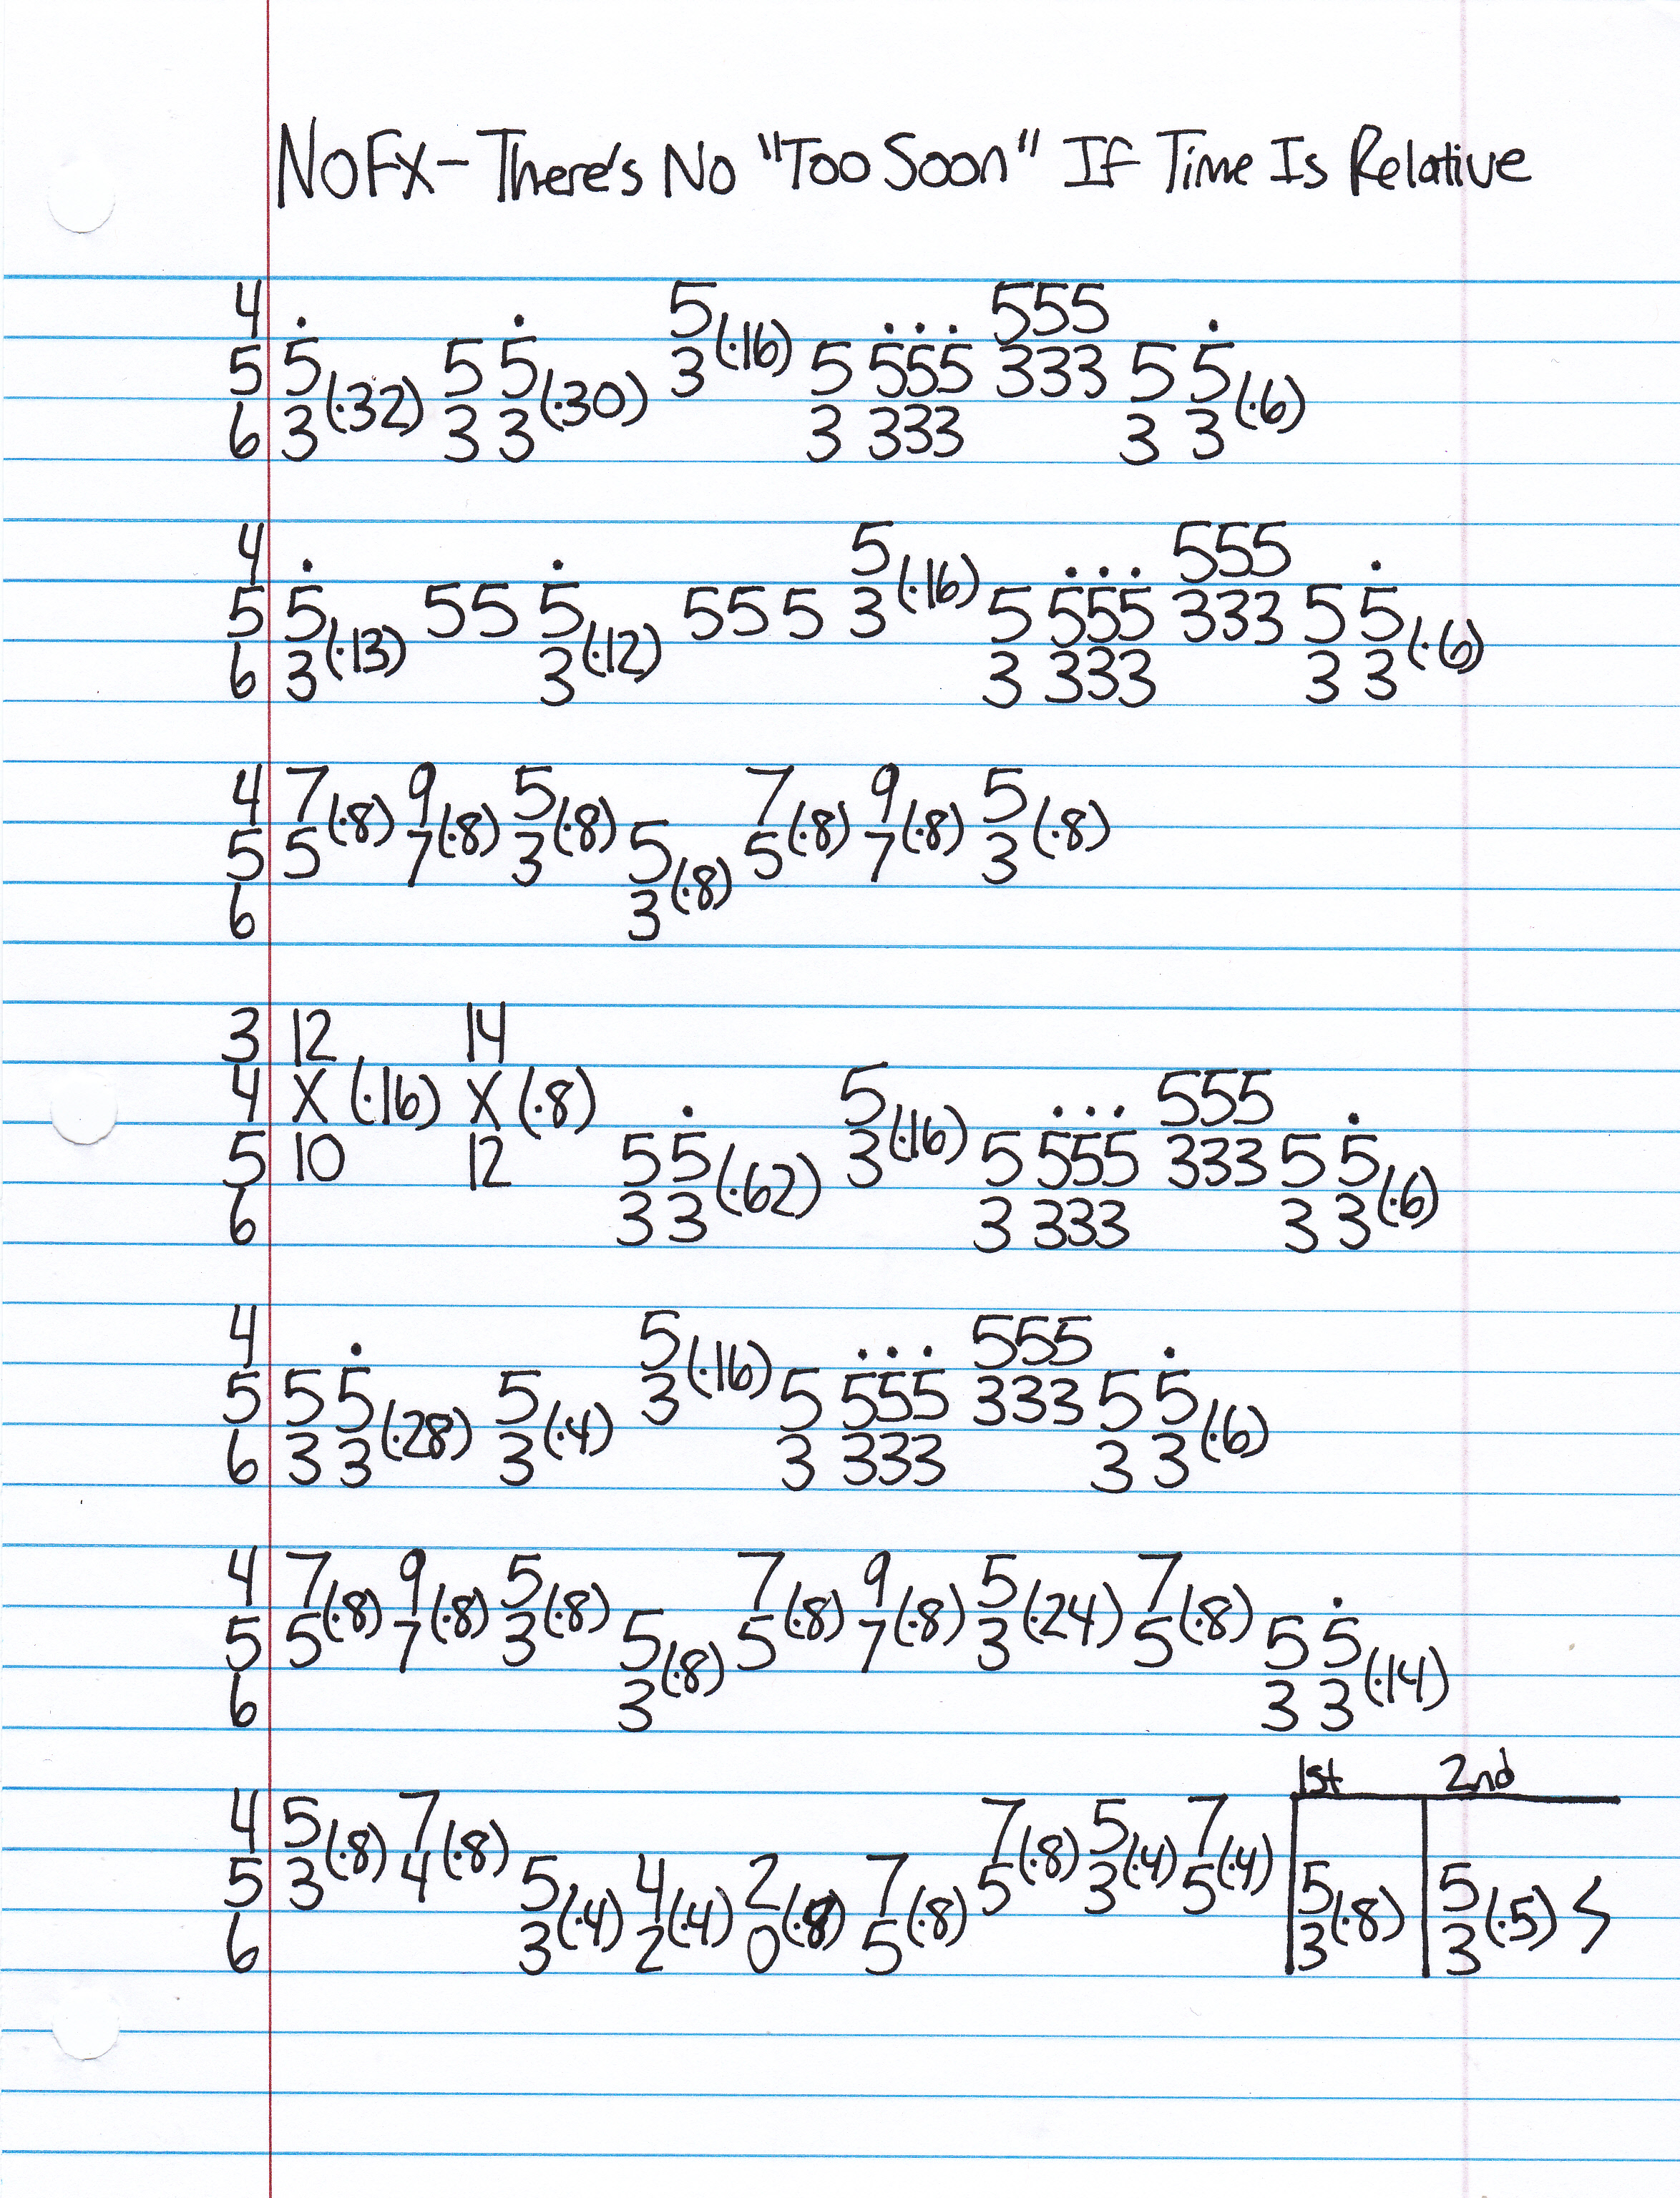 NOFX - There's No "Too Soon" If Time Is Relative
4 5(·16) 555
5 5(·32) 5 5(·30) 3 5 555 333 5 5(·6)
6 3 3 3 3 333 3 3
4 5(·16) 555
5 5(·13) 55 5(·12) 555 3 5 555 333 5 5(·6)
6 3 3 3 333 3 3
4 7(·8) 9(·8) 5(·8) 7(·8) 9(·8) 5(·8)
5 5 7 3 5(·8) 5 7 3
6 3
3 12 14
4 X (·16) X (·8) 5(·16) 555
5 10 12 55(·62) 3 5 555 333 5 5(·6)
6 3 3 3 333 3 3
4 5(·16) 555
5 5 5(·28) 5(·4) 3 5 555 333 5 5(·6)
6 3 3 3 3 333 3 3
4 7(·8) 9(·8) 5(·8) 7(·8) 9(·8) 5(·24) 7(·8)
5 5 7 3 5(·8) 5 7 3 5 5 5(·14)
6 3 3 3
1st 2nd
4 5(·8) 7(·8) 7(·8) 5(·4) 7(·4)
5 3 4 5(·4) 4(·4) 2(·8) 7(·8) 5 3 5 5(·8) 5(·5)
6 3 2 0 5 3 3